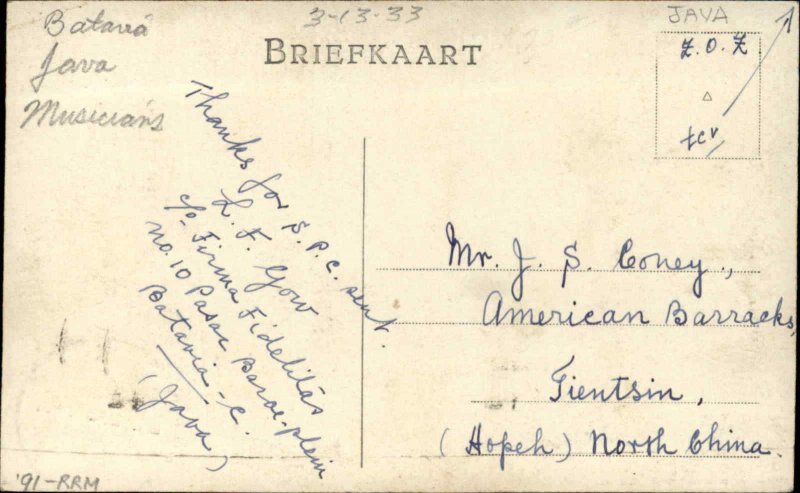 Batavia
Java
Musicians
3-13-33
JAVA
BRIEFKAART
Z.O.Z
tcv
Thanks for S.P.C. sent.
L. F. Gow
c/o Firma Fidelitas
No. 10 Pasar Baroe-plein
Batavia-C.
(Java)
Mr. J. S. Coney.,
American Barracks,
Tientsin,
(Hopeh) North China.
'91-RRM